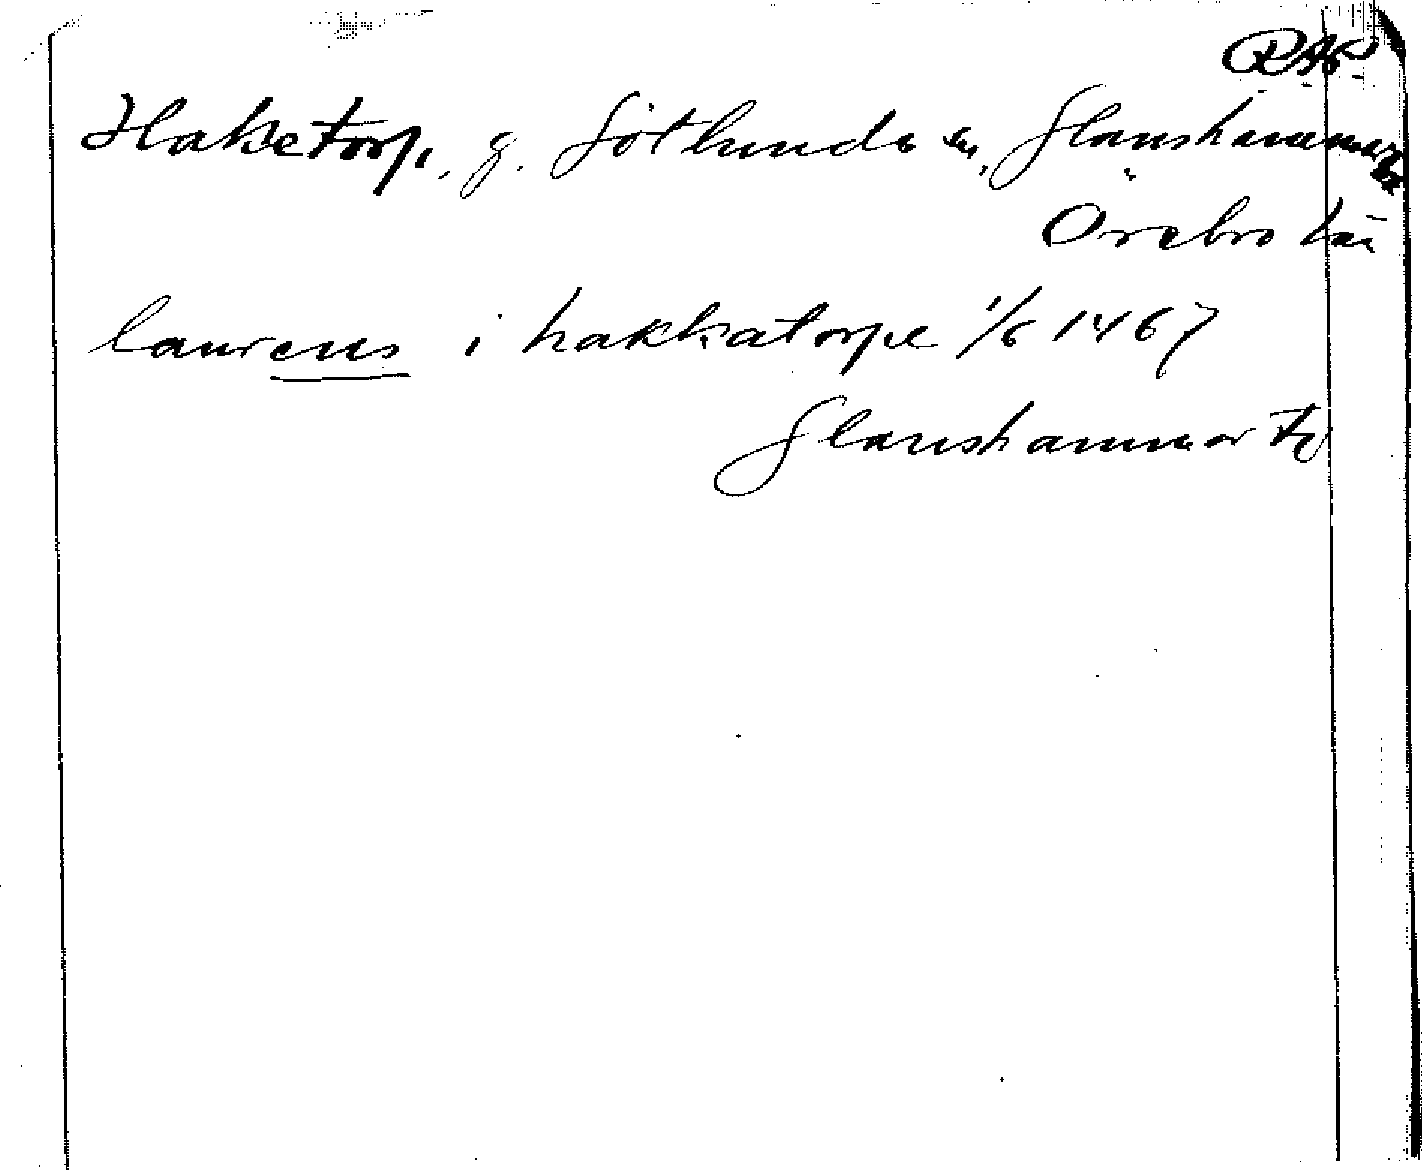 RAP
Haketorp, g. Götlunda sn, Glanshammars
Örebro län
laurens i hakkatorpe 1/6 1467
Glanshammar tg